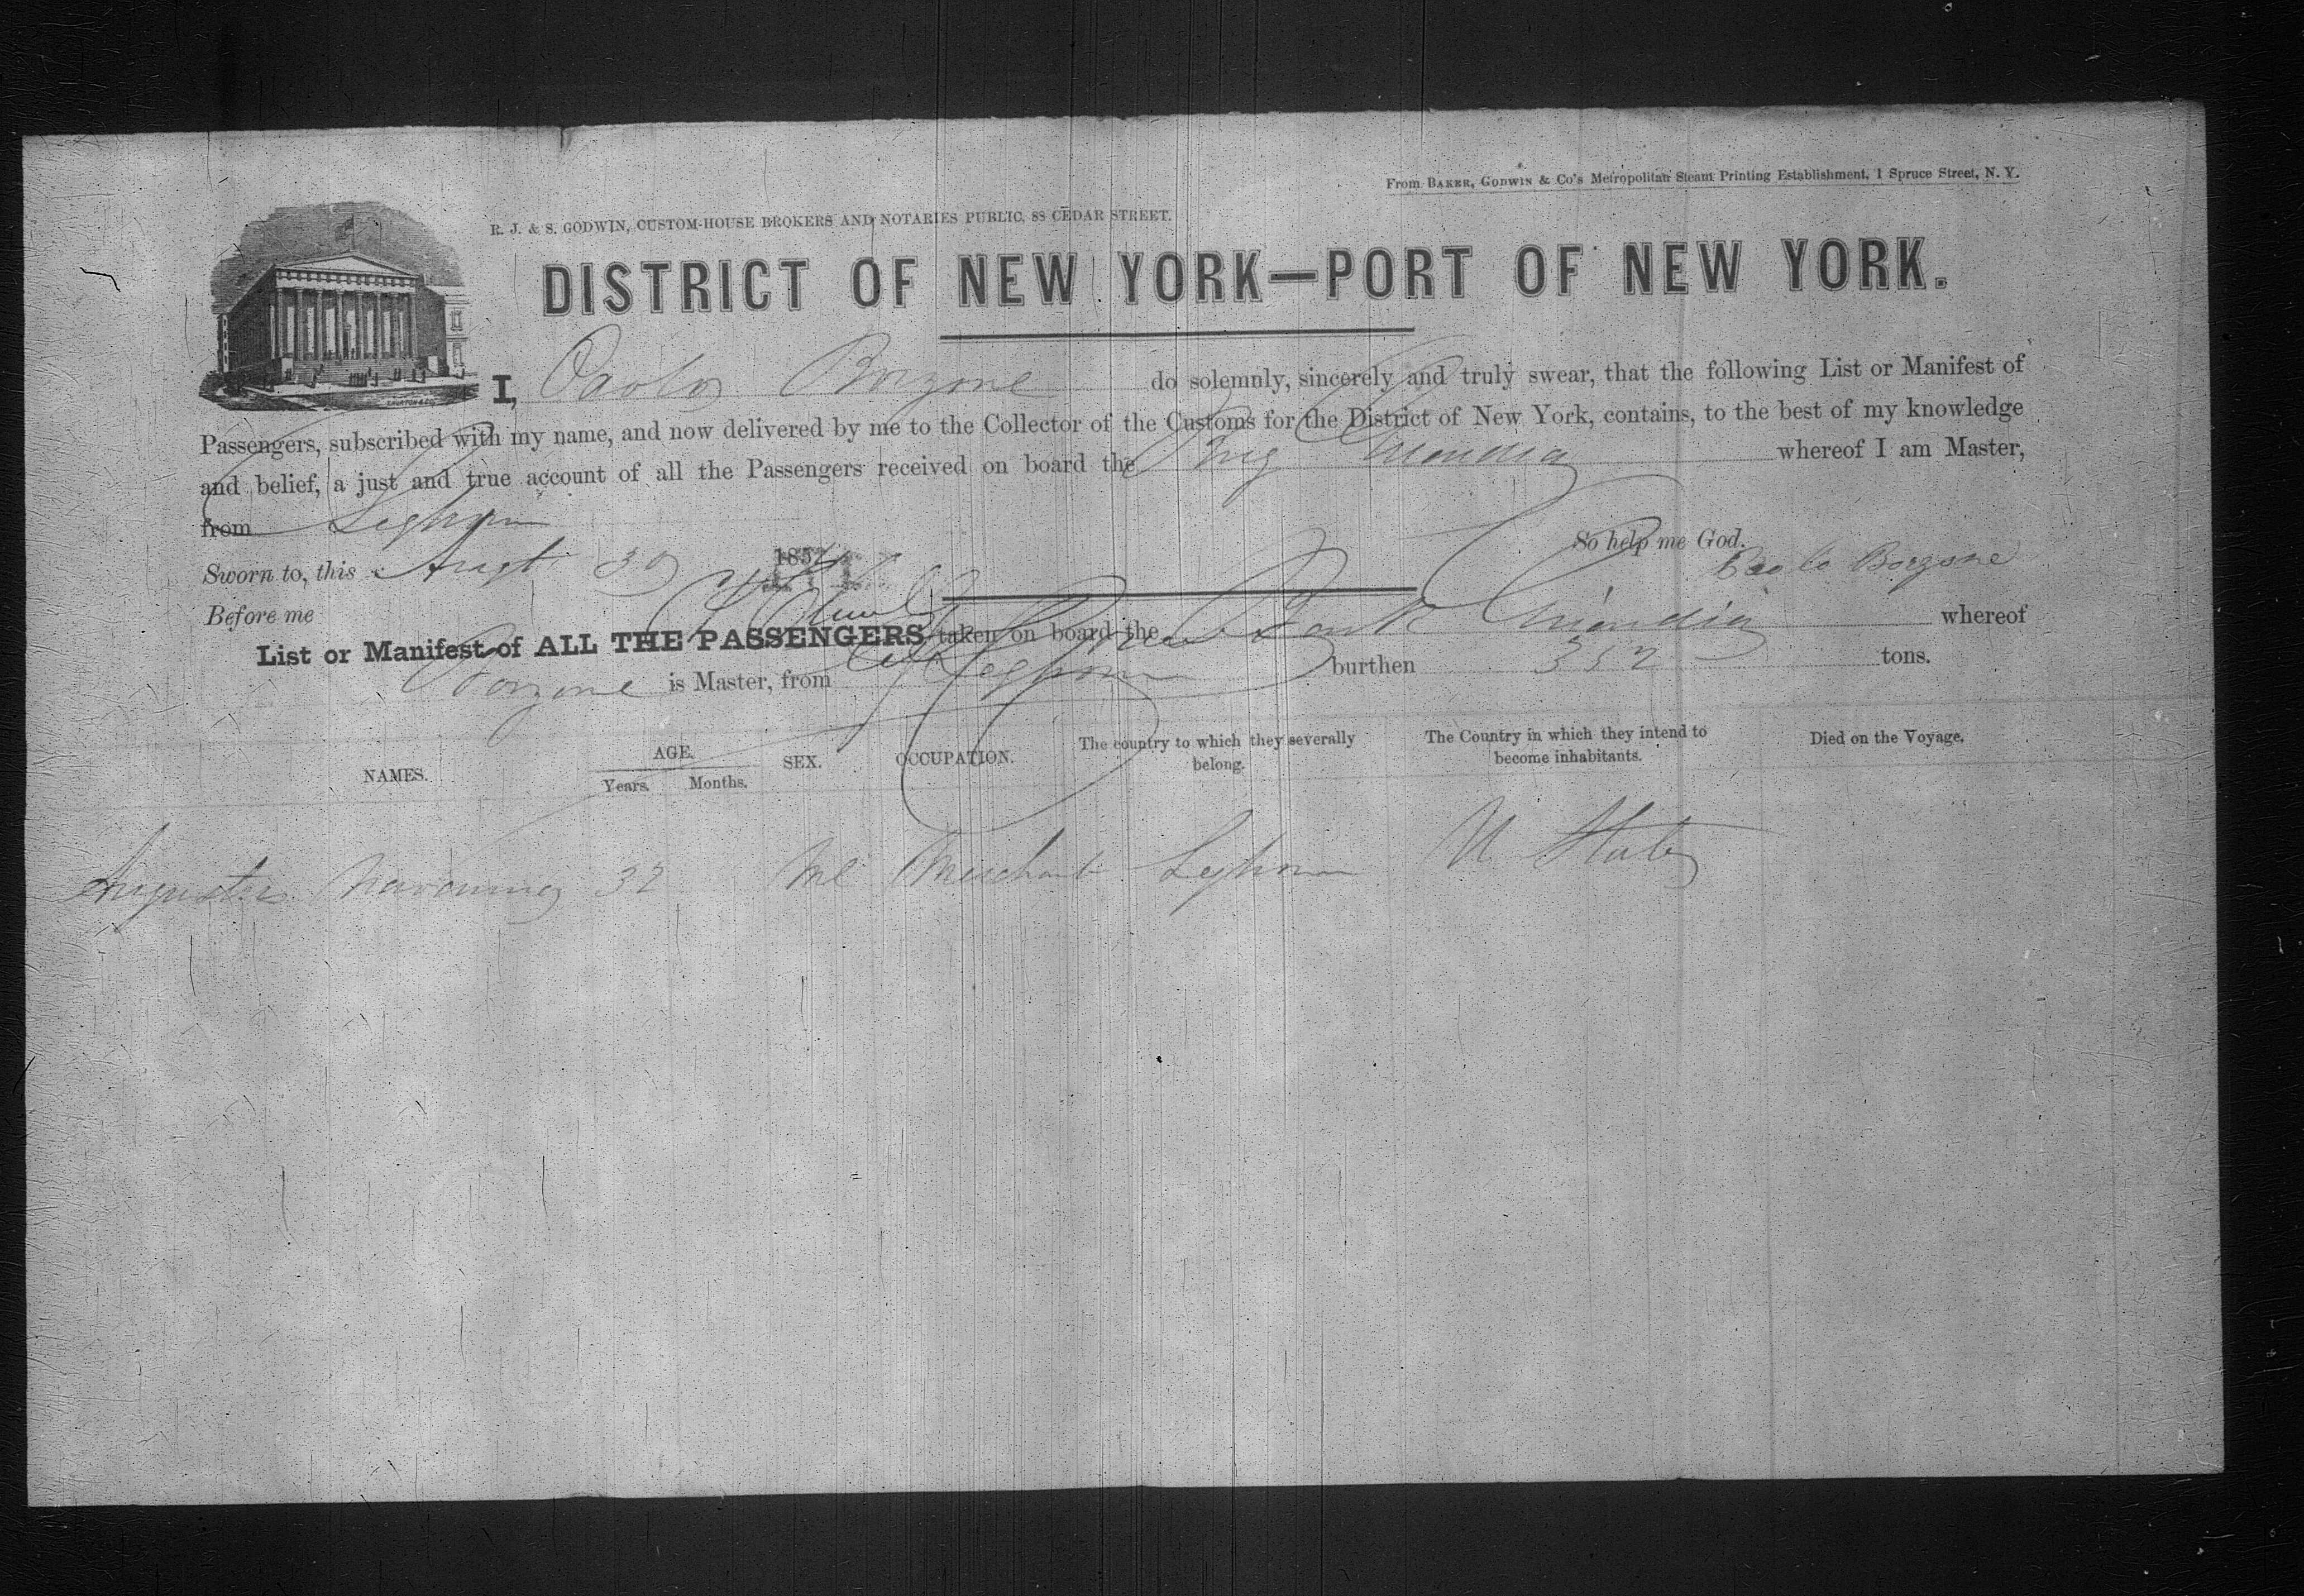 From BAKER, GODWIN & Co's Metropolitan Steam Printing Establishment, 1 Spruce Street, N. Y.
R. J. & S. GODWIN, CUSTOM-HOUSE BROKERS AND NOTARIES PUBLIC, 88 CEDAR STREET.
DISTRICT OF NEW YORK—PORT OF NEW YORK.
I, Paolo Borzone do solemnly, sincerely and truly swear, that the following List or Manifest of
Passengers, subscribed with my name, and now delivered by me to the Collector of the Customs for the District of New York, contains, to the best of my knowledge
and belief, a just and true account of all the Passengers received on board the Brig whereof I am Master,
from Leghorn
So help me God.
Sworn to, this Augt 30 185
Paolo Borzone
Before me
List or Manifest of ALL THE PASSENGERS taken on board the Bark whereof
Borzone is Master, from Leghorn burthen 352 tons.
NAMES. AGE. Years. Months. SEX. OCCUPATION. The country to which they severally belong. The Country in which they intend to become inhabitants. Died on the Voyage.
32 Ml Merchant Leghorn U States